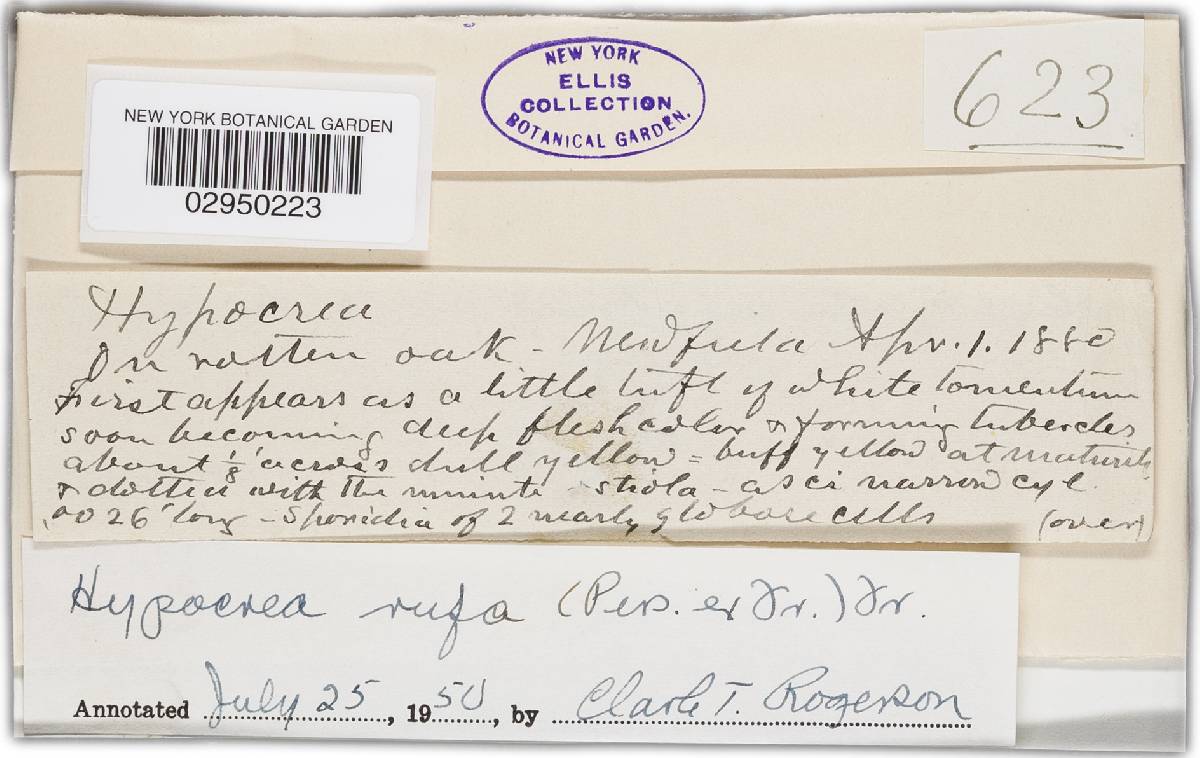 NEW YORK
ELLIS
COLLECTION
BOTANICAL GARDEN.
623
NEW YORK BOTANICAL GARDEN
02950223
Hypocrea
On rotten oak - Newfield Apr. 1. 1880
First appears as a little tuft of white tomentum
soon becoming deep flesh color & forming tubercles
about 1/8' across dull yellow = buff yellow at maturity
& dotted with the minute ostiola - asci narrow cyl.
.0026' long - Sporidia of 2 nearly globose cells (over)
Hypocrea rufa (Pers. ex Fr.) Fr.
Annotated July 25, 1950, by Clark T. Rogerson